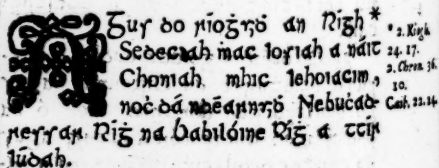 AGus do ríoġuiḋ an Rígh *
Sedeciah mac Iosiah a náit
Choniah mhic Iehoiacim,
noċ dá ndéarnuiḋ Nebucad-
ressar Ríġ na Babilóine Ríġ a ttír
Iúdah.
* 2. Kigh.
24. 17.
2. Chron. 36.
10.
Caib. 22. 24.